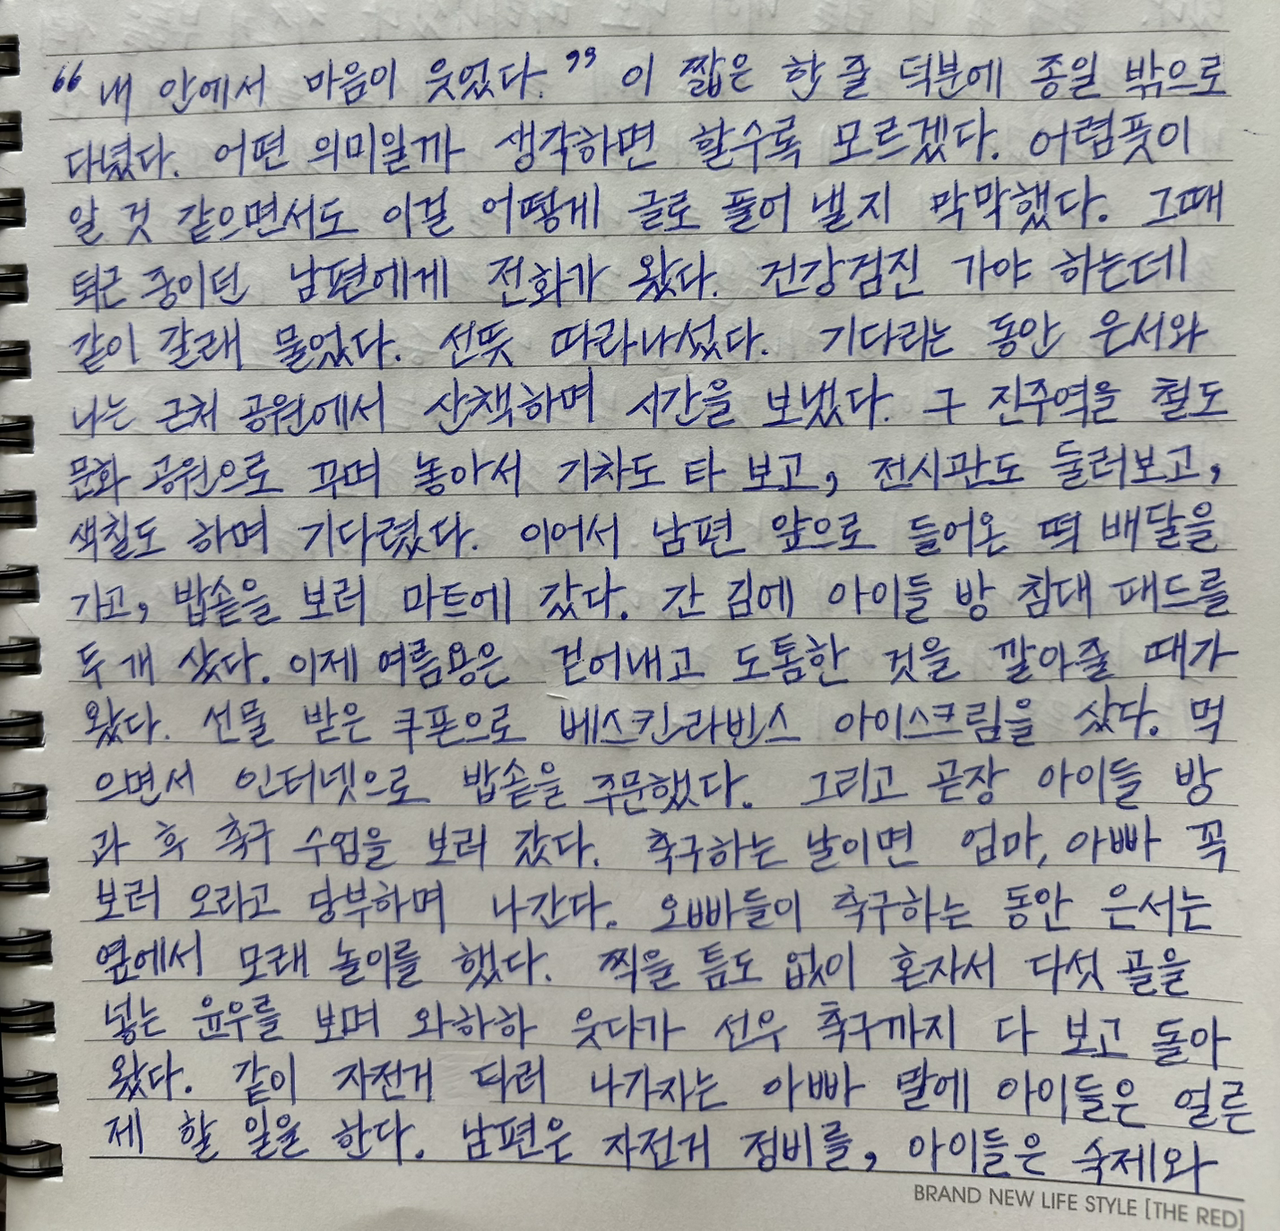 “내 안에서 마음이 웃었다.” 이 짧은 한 줄 덕분에 종일 밖으로
다녔다. 어떤 의미일까 생각하면 할수록 모르겠다. 어렴풋이
알 것 같으면서도 이걸 어떻게 글로 풀어 낼지 막막했다. 그때
퇴근 중이던 남편에게 전화가 왔다. 건강검진 가야 하는데
같이 갈래 물었다. 선뜻 따라나섰다. 기다리는 동안 은서와
나는 근처 공원에서 산책하며 시간을 보냈다. 구 진주역을 철도
문화 공원으로 꾸며 놓아서 기차도 타 보고, 전시관도 둘러보고,
색칠도 하며 기다렸다. 이어서 남편 앞으로 들어온 떡 배달을
가고, 밥솥을 보러 마트에 갔다. 간 김에 아이들 방 침대 패드를
두 개 샀다. 이제 여름용은 걷어내고 도톰한 것을 깔아줄 때가
왔다. 선물 받은 쿠폰으로 베스킨라빈스 아이스크림을 샀다. 먹
으면서 인터넷으로 밥솥을 주문했다. 그리고 곧장 아이들 방
과 후 축구 수업을 보러 갔다. 축구하는 날이면 엄마, 아빠 꼭
보러 오라고 당부하며 나간다. 오빠들이 축구하는 동안 은서는
옆에서 모래 놀이를 했다. 찍을 틈도 없이 혼자서 다섯 골을
넣는 윤우를 보며 와하하 웃다가 선우 축구까지 다 보고 돌아
왔다. 같이 자전거 타러 나가자는 아빠 말에 아이들은 얼른
제 할 일을 한다. 남편은 자전거 정비를, 아이들은 숙제와
BRAND NEW LIFE STYLE [THE RED]